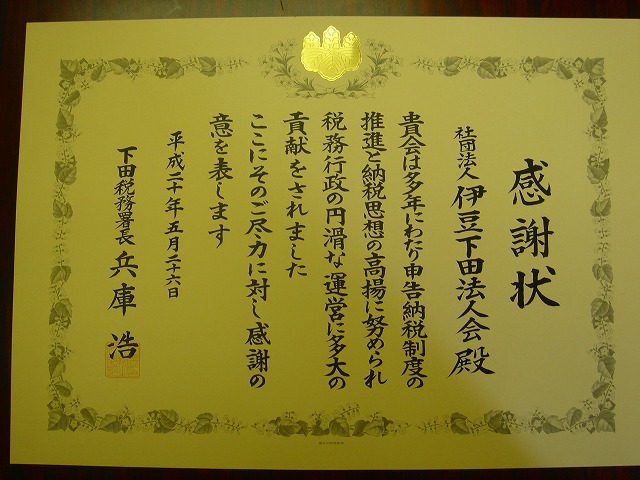 感謝状
社団法人 伊豆下田法人会 殿
貴会は多年にわたり申告納税制度の
推進と納税思想の高揚に努められ
税務行政の円滑な運営に多大の
貢献をされました
ここにそのご尽力に対し感謝の
意を表します
平成二十年五月二十六日
下田税務署長 兵庫 浩